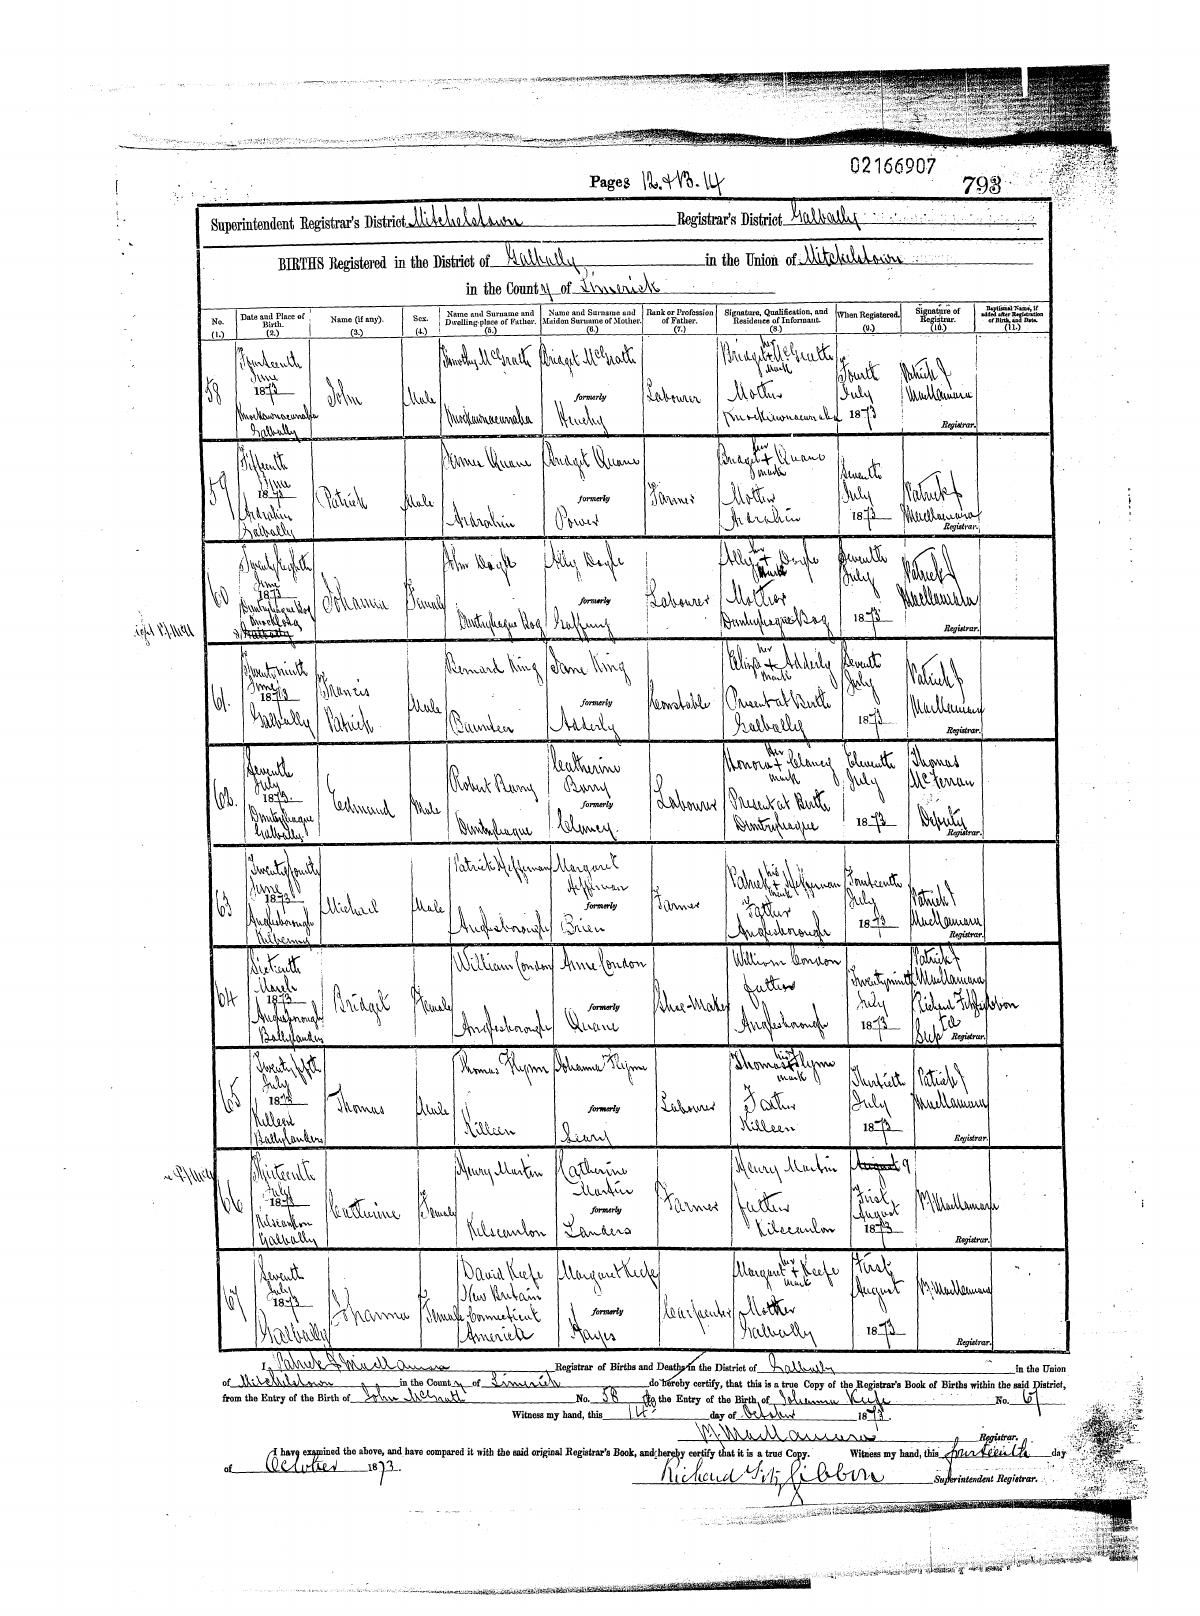 02166907
Pages 12.+13.14
793
Superintendent Registrar's District Mitchelstown Registrar's District Galbally
BIRTHS Registered in the District of Galbally in the Union of Mitchelstown
in the County of Limerick
No. (1.) Date and Place of Birth. (2.) Name (if any). (3.) Sex. (4.) Name and Surname and Dwelling-place of Father. (5.) Name and Surname and Maiden Surname of Mother. (6.) Rank or Profession of Father. (7.) Signature, Qualification, and Residence of Informant. (8.) When Registered. (9.) Signature of Registrar. (10.) Baptismal Name, if added after Registration of Birth, and Date. (11.)
58 Fourteenth June 1873 Galbally John Male Timothy McGrath Bridget McGrath formerly Labourer Bridget + McGrath her mark Mother Fourth July 1873 Patrick J MacNamara Registrar.
59 Fifteenth June 1873 Ardrahin Galbally Patrick Male James Quane Ardrahin Bridget Quane formerly Power Farmer Bridget + Quane her mark Mother Ardrahin Seventh July 1873 Patrick J MacNamara Registrar.
60 Twenty Eighth June 1873 Galbally Johanna Female John Doyle Ally Doyle formerly Gaffney Labourer Ally + Doyle her mark Mother Seventh July 1873 Patrick J MacNamara Registrar.
61. Twenty ninth June 1873 Galbally Francis Patrick Male Bernard King Baunteen Jane King formerly Adderly Constable Eliza + Adderly her mark Present at Birth Galbally Seventh July 1873 Patrick J MacNamara Registrar.
62. Seventh July 1873. Duntryleague Galbally. Edmund Male Robert Barry Duntryleague Catherine Barry formerly Clancy. Labourer Honora + Clancy her mark Present at Birth Duntryleague Eleventh July 1873 Thomas McFerran Deputy Registrar.
63 Twenty fourth June 1873 Anglesborough Kilbenny Michael Male Patrick Heffernan Anglesborough Margaret Heffernan formerly Brien Farmer Patrick + Heffernan his mark Father Anglesborough Fourteenth July 1873 Patrick J MacNamara Registrar.
64 Sixteenth March 1873 Anglesborough Ballylanders Bridget Female William Condon Anglesborough Anne Condon formerly Quane Shoe-Maker William Condon father Anglesborough Twenty ninth July 1873 Patrick J MacNamara Richard FitzGibbon Registrar.
65 Twenty fifth July 1873 Killeen Ballylanders Thomas Male Thomas Flynn Killeen Johanna Flynn formerly Leary Labourer Thomas + Flynn his mark Father Killeen Thirtieth July 1873 Patrick J MacNamara Registrar.
66 Thirteenth July 1873 Kilscanlon Galbally Catherine Female Henry Martin Kilscanlon Catherine Martin formerly Landers Farmer Henry Martin father Kilscanlon August 9 First August 1873 MacNamara Registrar.
67 Seventh July 1873 Galbally Johanna Female David Keefe New Britain Connecticut America Margaret Keefe formerly Hayes Carpenter Margaret + Keefe her mark Mother Galbally First August 1873 MacNamara Registrar.
I Patrick J MacNamara Registrar of Births and Deaths in the District of Galbally in the Union
of Mitchelstown in the County of Limerick do hereby certify, that this is a true Copy of the Registrar's Book of Births within the said District,
from the Entry of the Birth of John McGrath No. 58 to the Entry of the Birth of Johanna Keefe No. 67
Witness my hand, this 14th day of October 1873.
MacNamara Registrar.
I have examined the above, and have compared it with the said original Registrar's Book, and hereby certify that it is a true Copy. Witness my hand, this fourteenth day
of October 1873.
Richard FitzGibbon Superintendent Registrar.